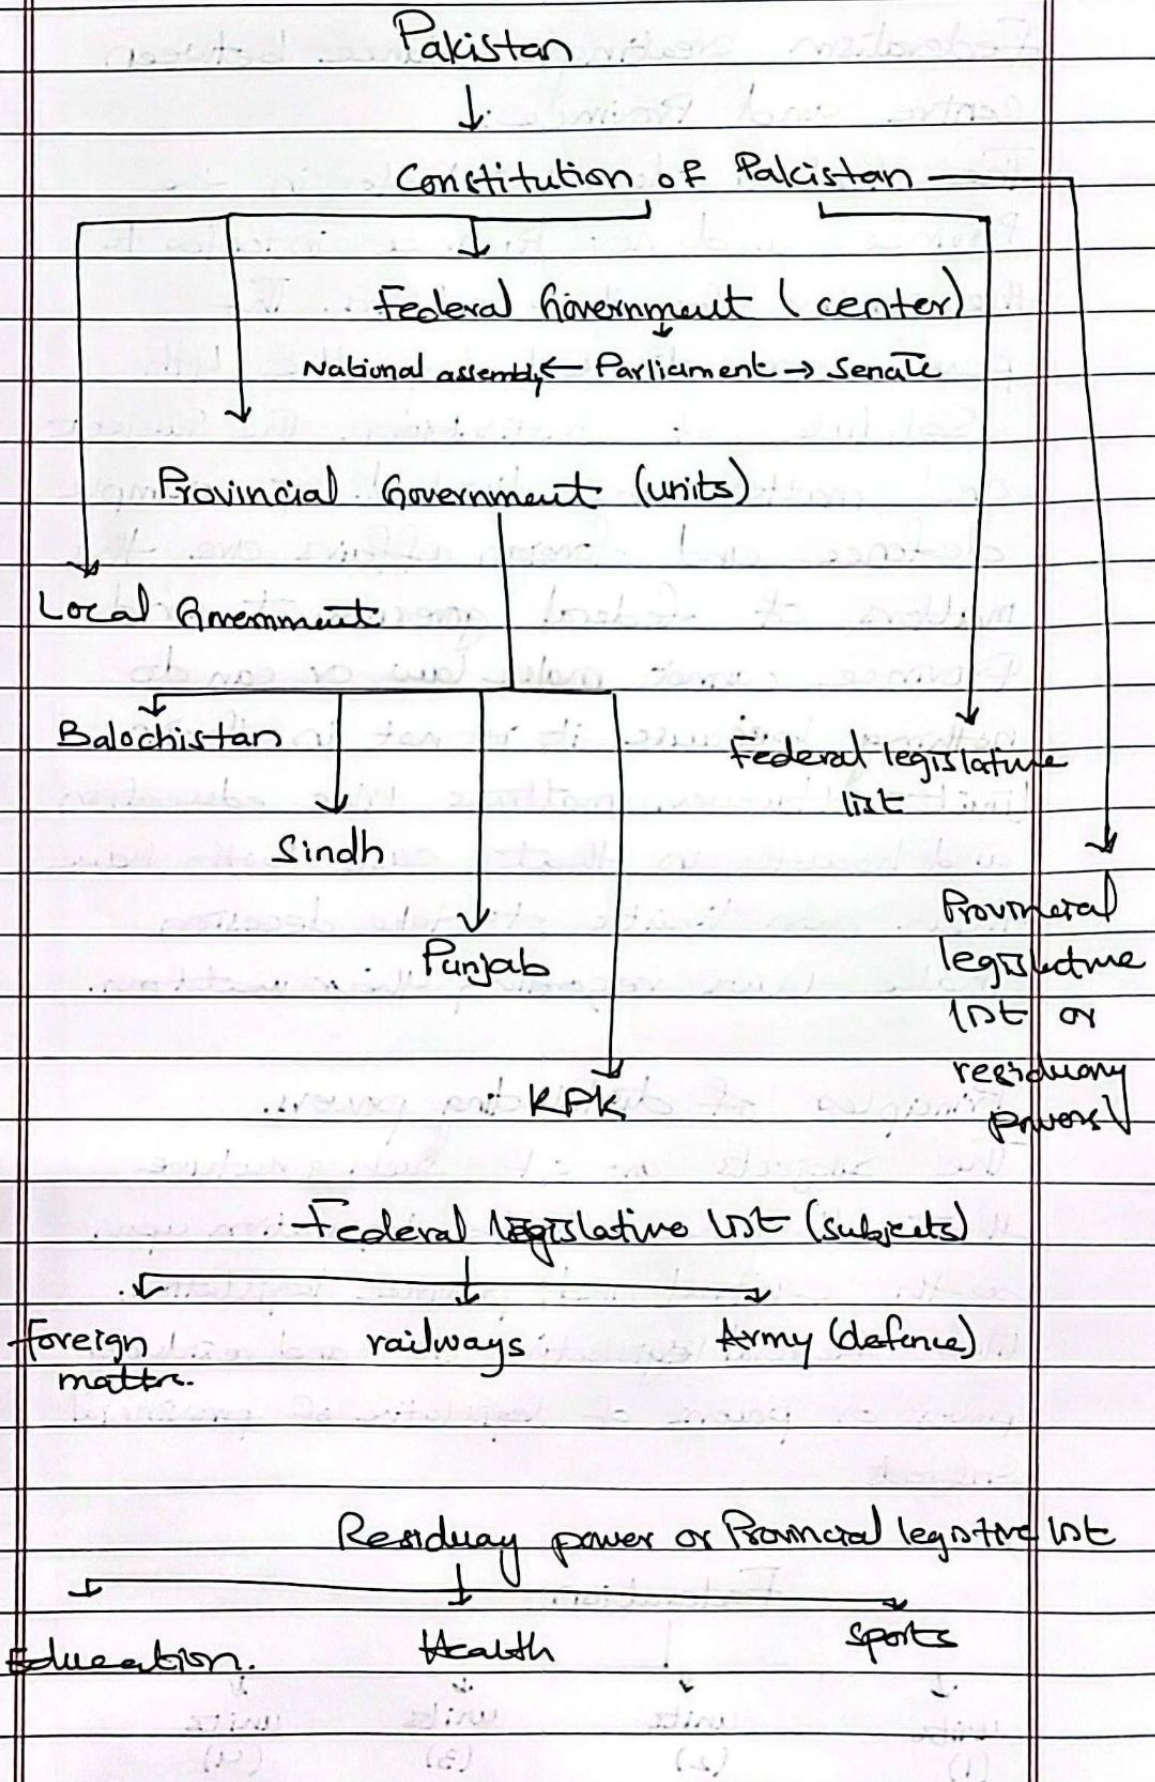 Pakistan
Constitution of Pakistan
Federal Government (center)
National assembly ← Parliament → Senate
Provincial Government (units)
Local Government
Balochistan
Federal legislature
list
Sindh
Provincial
Punjab
legislature
list or
residuary
KPK
powers
Federal legislative list (subjects)
foreign
railways
Army (defence)
matter.
Residuay power or Provincial legistive list
Education.
Health
sports